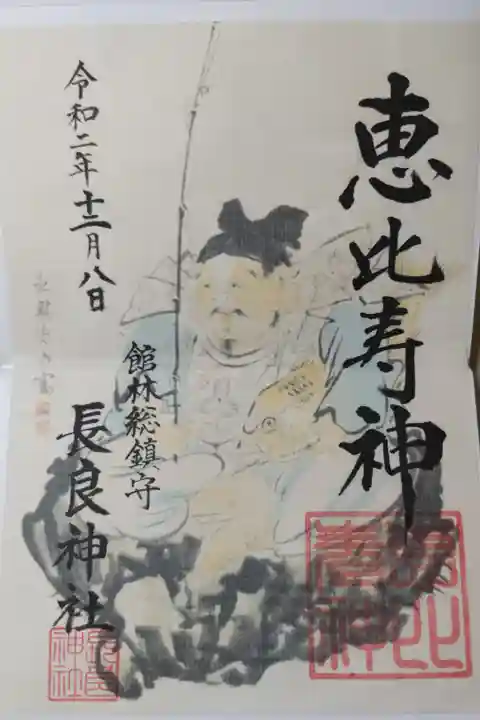 恵比寿神
館林総鎮守
長良神社
令和二年十二月八日
長良
神社